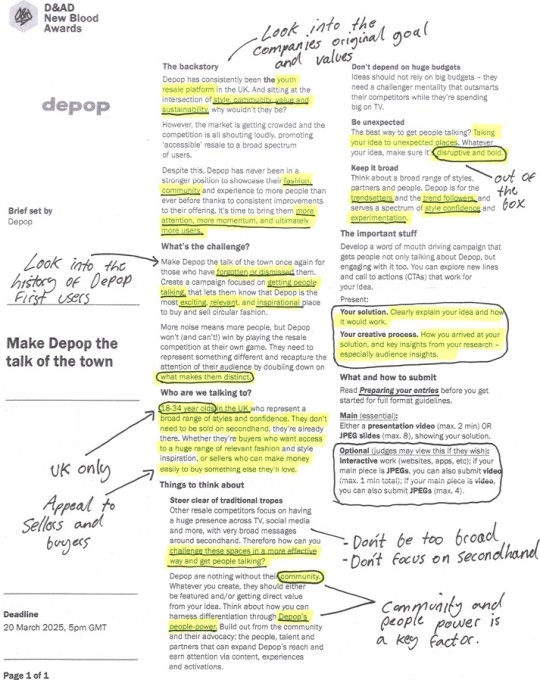 D&AD
New Blood
Awards
depop
Brief set by
Depop
Look into the
history of Depop
First users
Make Depop the
talk of the town
UK only
Appeal to
sellers and
buyers
Deadline
20 March 2025, 5pm GMT
Page 1 of 1
Look into the
companies original goal
and values
The backstory
Depop has consistently been the youth
resale platform in the UK. And sitting at the
intersection of style, community, value and
sustainability, why wouldn't they be?
However, the market is getting crowded and the
competition is all shouting loudly, promoting
'accessible' resale to a broad spectrum
of users.
Despite this, Depop has never been in a
stronger position to showcase their fashion,
community and experience to more people than
ever before thanks to consistent improvements
to their offering. It's time to bring them more
attention, more momentum, and ultimately
more users.
What's the challenge?
Make Depop the talk of the town once again for
those who have forgotten or dismissed them.
Create a campaign focused on getting people
talking, that lets them know that Depop is the
most exciting, relevant, and inspirational place
to buy and sell circular fashion.
More noise means more people, but Depop
won't (and can't!) win by playing the resale
competition at their own game. They need to
represent something different and recapture the
attention of their audience by doubling down on
what makes them distinct.
Who are we talking to?
18-34 year olds in the UK who represent a
broad range of styles and confidence. They don't
need to be sold on secondhand, they're already
there. Whether they're buyers who want access
to a huge range of relevant fashion and style
inspiration, or sellers who can make money
easily to buy something else they'll love.
Things to think about
Steer clear of traditional tropes
Other resale competitors focus on having
a huge presence across TV, social media
and more, with very broad messages
around secondhand. Therefore how can you
challenge these spaces in a more effective
way and get people talking?
Depop are nothing without their community.
Whatever you create, they should either
be featured and/or getting direct value
from your idea. Think about how you can
harness differentiation through Depop's
people-power. Build out from the community
and their advocacy: the people, talent and
partners that can expand Depop's reach and
earn attention via content, experiences
and activations.
Don't depend on huge budgets
Ideas should not rely on big budgets – they
need a challenger mentality that outsmarts
their competitors while they're spending
big on TV.
Be unexpected
The best way to get people talking? Taking
your idea to unexpected places. Whatever
your idea, make sure it's disruptive and bold.
Keep it broad
Think about a broad range of styles,
partners and people. Depop is for the
trendsetters and the trend followers, and
serves a spectrum of style confidence and
experimentation.
out of
the
box
The important stuff
Develop a word of mouth driving campaign that
gets people not only talking about Depop, but
engaging with it too. You can explore new lines
and call to actions (CTAs) that work for
your idea.
Present:
Your solution. Clearly explain your idea and how
it would work.
Your creative process. How you arrived at your
solution, and key insights from your research –
especially audience insights.
What and how to submit
Read Preparing your entries before you get
started for full format guidelines.
Main (essential):
Either a presentation video (max. 2 min) OR
JPEG slides (max. 8), showing your solution.
Optional (judges may view this if they wish):
Interactive work (websites, apps, etc); if your
main piece is JPEGs, you can also submit video
(max. 1 min total); if your main piece is video,
you can also submit JPEGs (max. 4).
- Don't be too broad
- Don't focus on secondhand
Community and
people power is
a key factor.